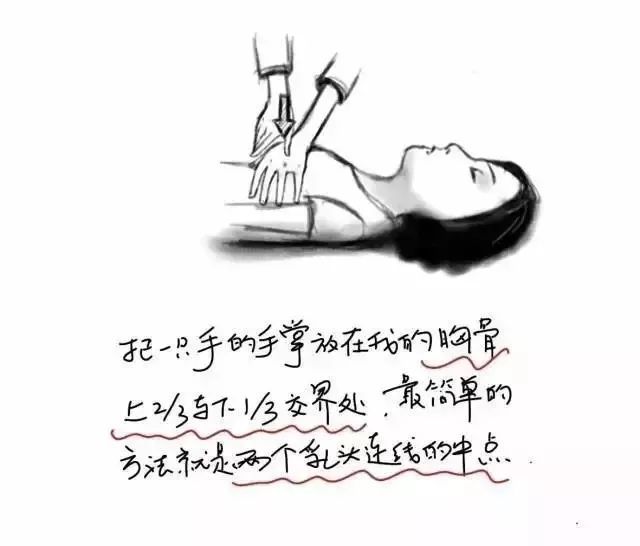 把一只手的手掌放在我的胸骨
上2/3与下1/3交界处，最简单的
方法就是两个乳头连线的中点.